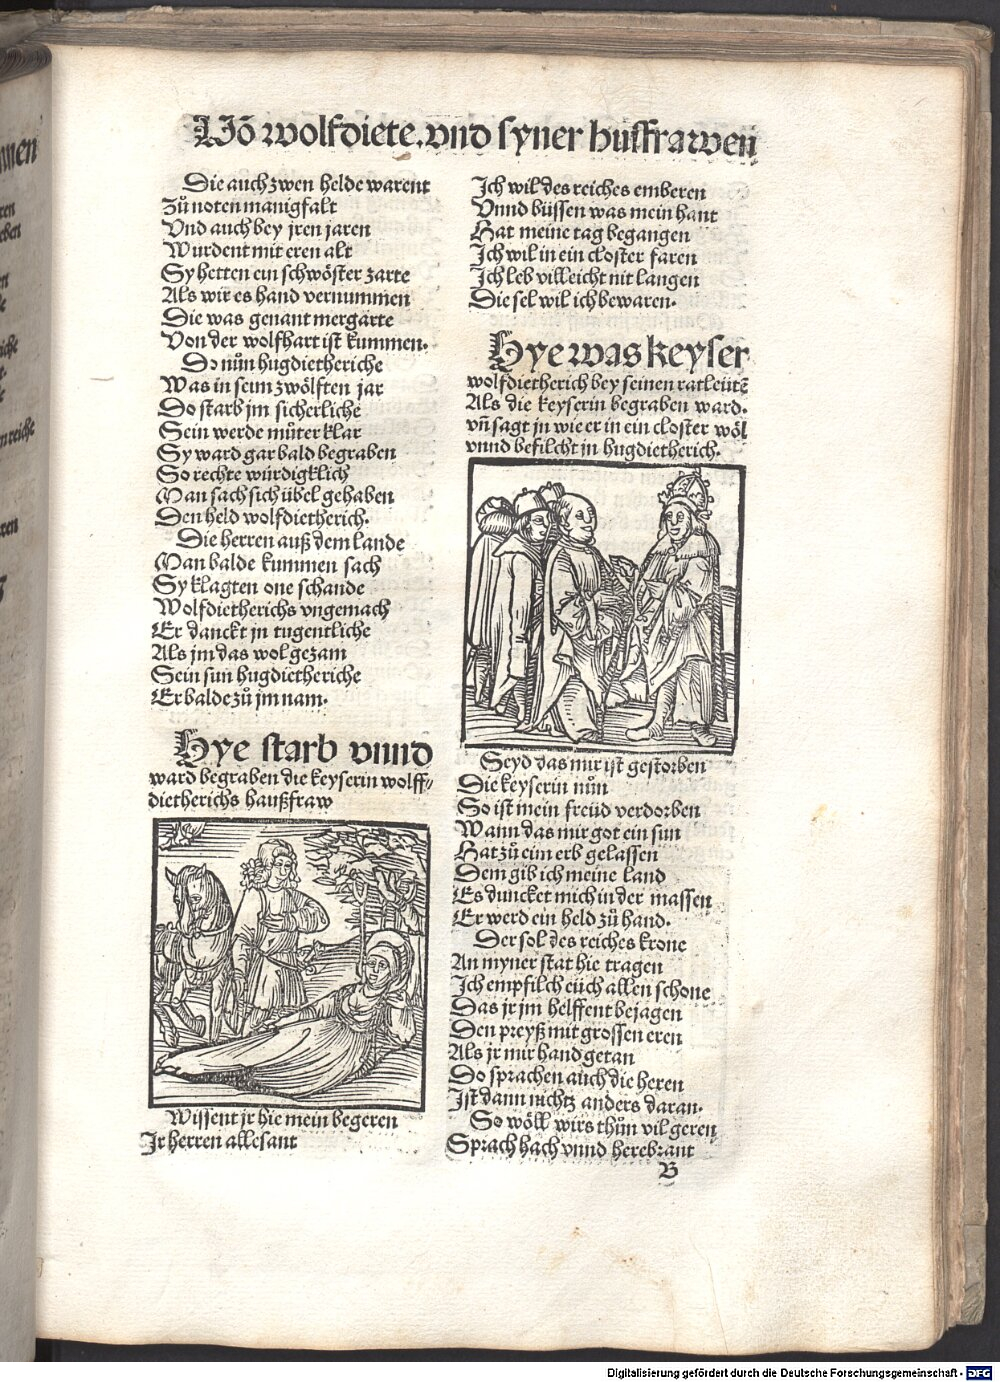 Võ wolfdiete. vnd syner huſfrawen
Die auch zwen helde warent
Zů noten manigfalt
Vnd auch bey jren jaren
Wurdent mit eren alt
Sy hetten ein schwöster zarte
Als wir es hand vernummen
Die was genant mergarte
Von der wolfhart ist kummen.
Do nůn hugdietheriche
Was in seim zwölften jar
Do starb jm sicherliche
Sein werde můter klar
Sy ward gar bald begraben
So rechte würdigklich
Man sach sich übel gehaben
Den held wolfdietherich.
Die herren auß dem lande
Man balde kummen sach
Sy klagten one schande
Wolfdietherichs vngemach
Er danckt jn tugentliche
Als jm das wol gezam
Sein sun hugdietheriche
Er balde zů jm nam.
Hye starb vnnd
ward begraben die keyserin wolff⸗
dietherichs haußfraw
Wissent jr hie mein begeren
Jr herren allesant
Jch wil des reiches emberen
Vnnd büssen was mein hant
Hat meine tag begangen
Jch wil in ein closter faren
Jch leb villeicht nit langen
Die sel wil ich bewaren.
Hye was keyser
wolfdietherich bey seinen ratleütẽ
Als die keyserin begraben ward.
vñ sagt jn wie er in ein closter wöl
vnnd befilcht jn hugdietherich.
Seyd das mir ist gestorben
Die keyserin nůn
So ist mein freüd verdorben
Wann das mir got ein sun
Hat zů eim erb gelassen
Dem gib ich meine land
Es duncket mich in der massen
Er werd ein held zů hand.
Der sol des reiches krone
An myner stat hie tragen
Jch empfilch eüch allen schone
Das jr jm helffent bejagen
Den preyß mit grossen eren
Als jr mir hand getan
Do sprachen auch die heren
Jst dann nichtz anders daran.
So wöll wirs thůn vil geren
Sprach hach vnnd herebrant
B
Digitalisierung gefördert durch die Deutsche Forschungsgemeinschaft - DFG